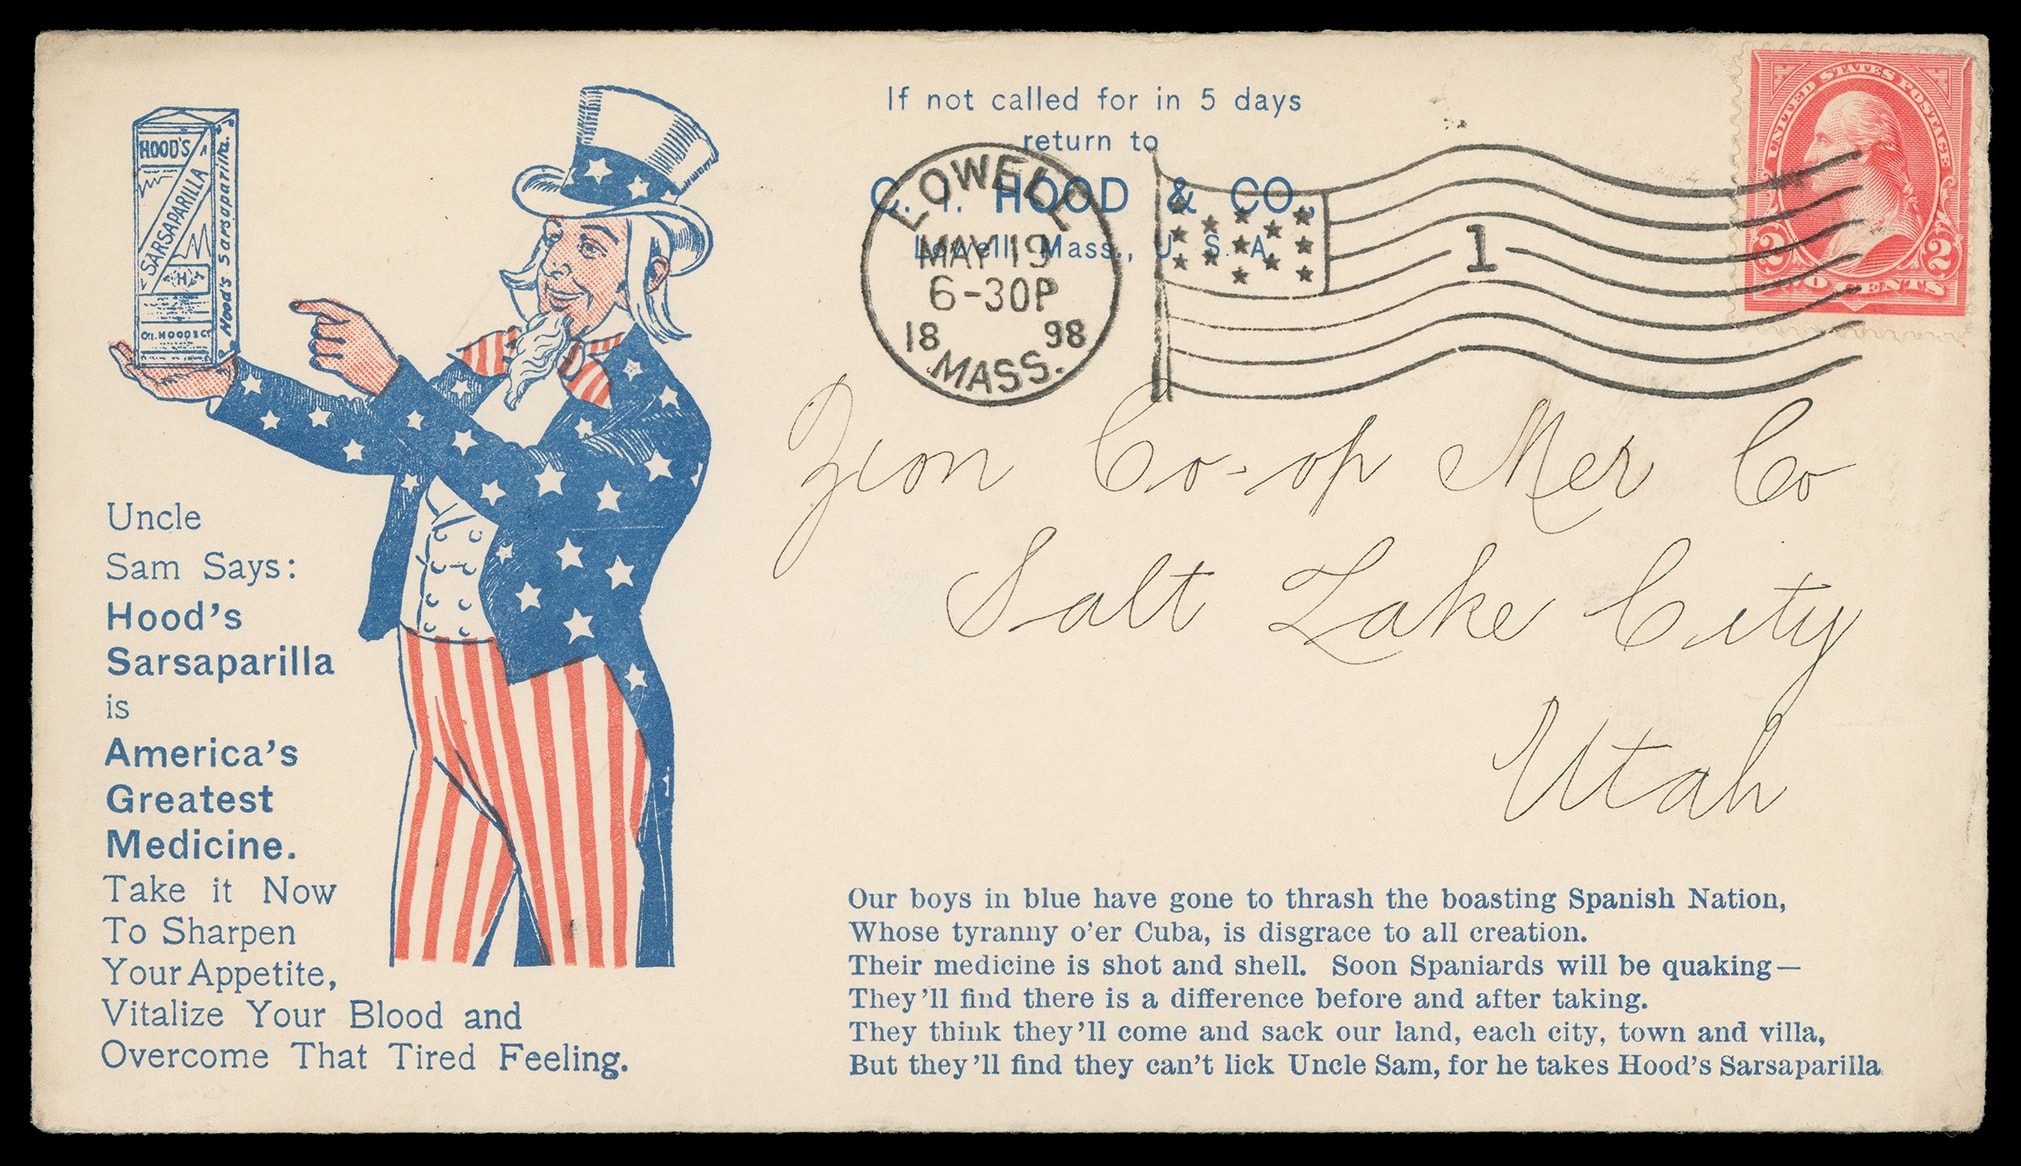 HOOD'S
SARSAPARILLA
H
C.I. HOOD & CO
Hood's Sarsaparilla.
Uncle
Sam Says:
Hood's
Sarsaparilla
is
America's
Greatest
Medicine.
Take it Now
To Sharpen
Your Appetite,
Vitalize Your Blood and
Overcome That Tired Feeling.
If not called for in 5 days
return to
C. I. HOOD & CO.,
Lowell, Mass., U. S. A.
LOWELL
MAY 19
6-30P
18 98
MASS.
1
UNITED STATES POSTAGE
2 2
TWO CENTS
Zion Co-op Mer Co
Salt Lake City
Utah
Our boys in blue have gone to thrash the boasting Spanish Nation,
Whose tyranny o'er Cuba, is disgrace to all creation.
Their medicine is shot and shell. Soon Spaniards will be quaking—
They'll find there is a difference before and after taking.
They think they'll come and sack our land, each city, town and villa,
But they'll find they can't lick Uncle Sam, for he takes Hood's Sarsaparilla